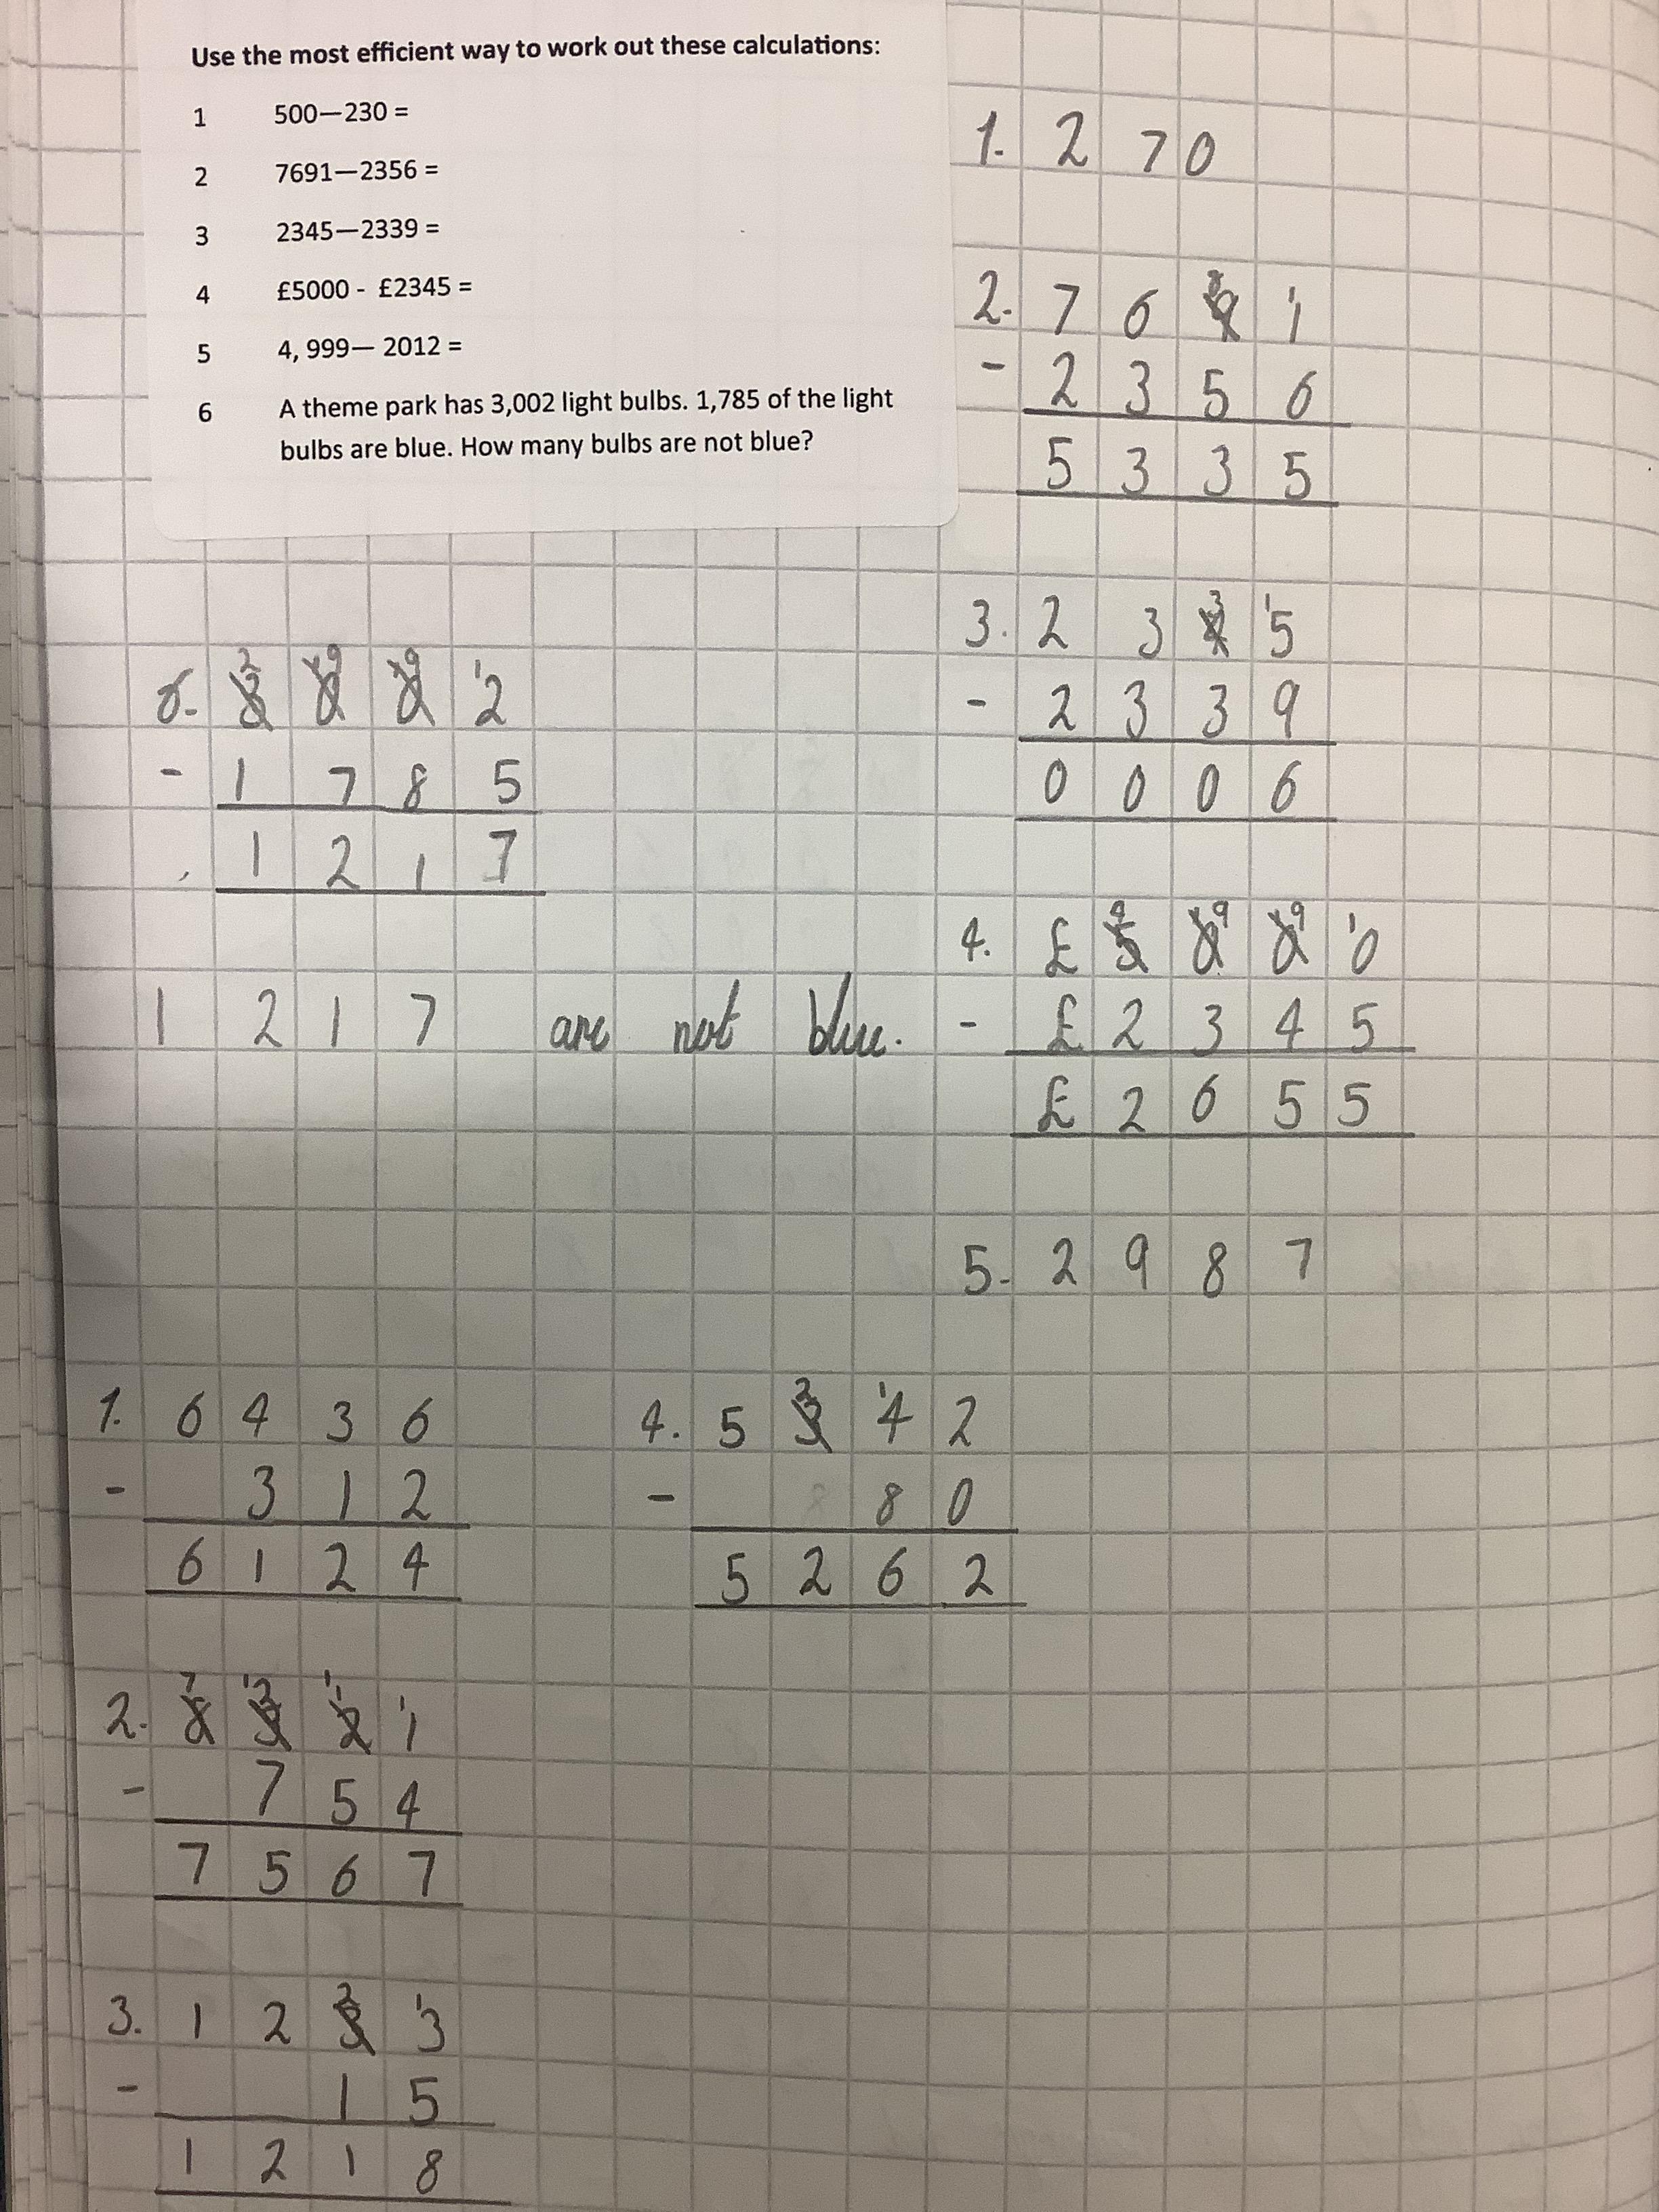 Use the most efficient way to work out these calculations:
1 500—230 =
2 7691—2356 =
3 2345—2339 =
4 £5000 - £2345 =
5 4, 999— 2012 =
6 A theme park has 3,002 light bulbs. 1,785 of the light
bulbs are blue. How many bulbs are not blue?
1. 2 7 0
2. 7 6 9 1
8 1
- 2 3 5 6
5 3 3 5
3. 2 3 4 5
3 1
- 2 3 3 9
0 0 0 6
4. £ 5 0 0 0
4 1 9 1 9 1
- £ 2 3 4 5
£ 2 6 5 5
5. 2 9 8 7
6. 3 0 0 2
2 1 9 1 9 1
- 1 7 8 5
1 2 1 7
1 2 1 7 are not blue.
1. 6 4 3 6
- 3 1 2
6 1 2 4
2. 8 3 2 1
7 1 2 1 1 1
- 7 5 4
7 5 6 7
3. 1 2 3 3
2 1
- 1 5
1 2 1 8
4. 5 3 4 2
2 1
- 8 0
5 2 6 2